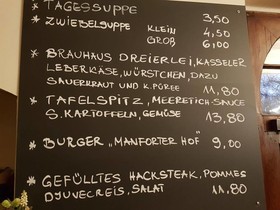 * TAGESSUPPE 3,50
* ZWIEBELSUPPE KLEIN 4,50
GROß 6,00
* BRAUHAUS DREIERLEI, KASSELER
LEBERKÄSE, WÜRSTCHEN, DAZU
SAUERKRAUT UND K.PÜREE 11,80
* TAFELSPITZ, MEERETICH-SAUCE
S.KARTOFFELN, GEMÜSE 13,80
* BURGER „MANFORTER HOF" 9,00
* GEFÜLLTES HACKSTEAK, POMMES
DJUVECREIS, SALAT 11,80